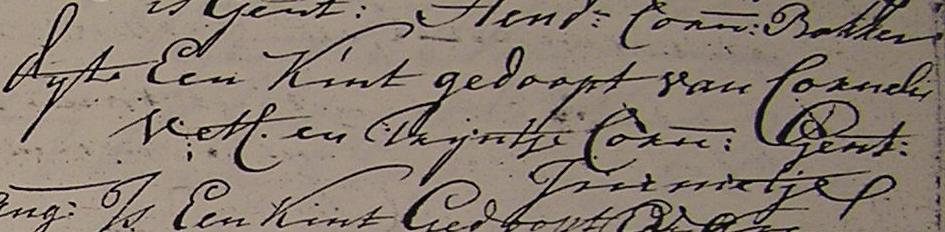 is Gent: Hend: Corn: Bakker
dyto Een Kint gedoopt van Cornelis
Vet en Tryntje Corn: Gent:
Jannetje
Is Een Kint Gedoopt Van